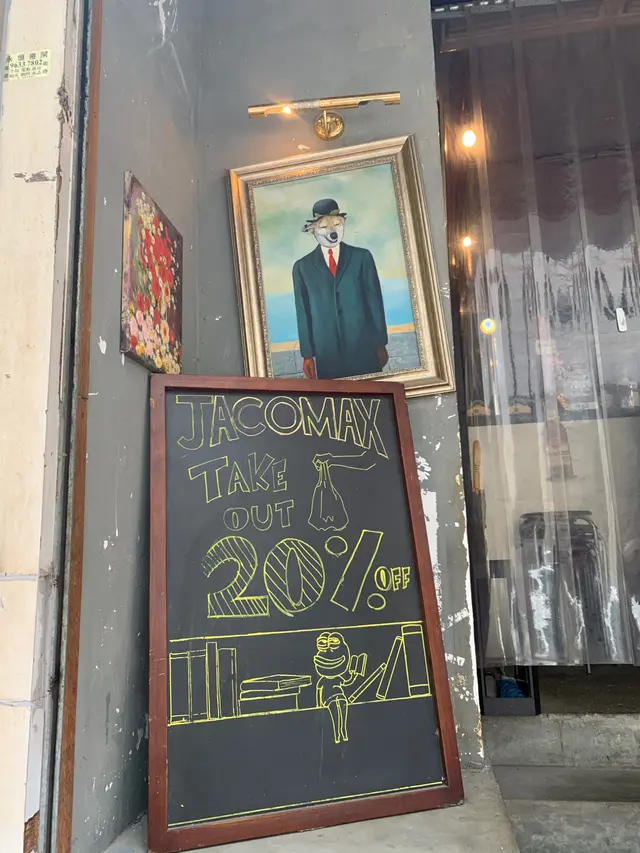 9633 7802
JACOMAX
TAKE
OUT
20% OFF